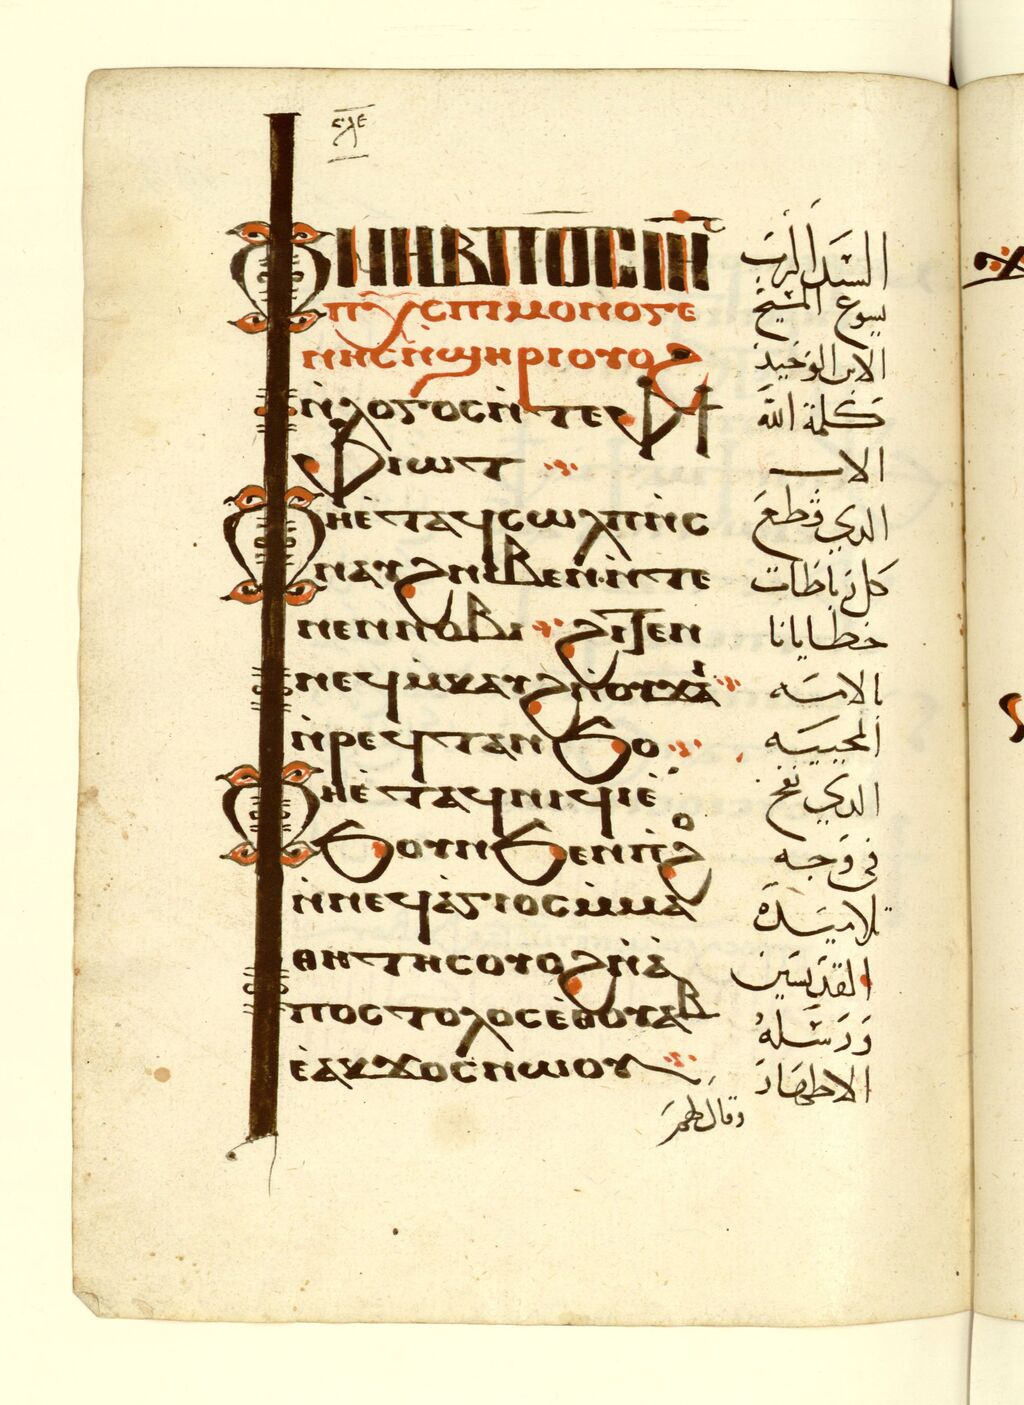 ⲫⲛⲏⲃ ⲡ⳪ ⲓⲏ̅ⲥ̅
ⲡⲭ̅ⲥ ⲡⲓⲙⲟⲛⲟⲅⲉ
ⲛⲏⲥ ⲛ̀ϣⲏⲣⲓ ⲟⲩⲟϩ
ⲛ̀ⲗⲟⲅⲟⲥ ⲛ̀ⲧⲉ ⲫϯ
ⲫⲓⲱⲧ
ⲫⲏⲉ̀ⲧⲁϥⲥⲱⲗⲡ ⲛ̀ⲥ
ⲛⲁⲩϩ ⲛⲓⲃⲉⲛ ⲛ̀ⲧⲉ
ⲛⲉⲛⲛⲟⲃⲓ ϩⲓⲧⲉⲛ
ⲛⲉϥⲙ̀ⲕⲁⲩϩ ⲛ̀ⲟⲩϫⲁⲓ
ⲛ̀ⲣⲉϥⲧⲁⲛϧⲟ
ⲫⲏⲉ̀ⲧⲁϥⲛⲓϥⲓ ⲉ̀
ϧⲟⲩⲛ ϧⲉⲛ ⲡ̀ϩⲟ
ⲛ̀ⲛⲉϥⲁ̀ⲅⲓⲟⲥ ⲙ̀ⲙⲁ
ⲑⲏⲧⲏⲥ ⲟⲩⲟϩ ⲛ̀ⲁ̀
ⲡⲟⲥⲧⲟⲗⲟⲥ ⲉ̀ⲑⲟⲩⲁⲃ
ⲉ̀ⲁϥϫⲟⲥ ⲛⲱⲟⲩ
السيد الرب
يسوع المسيح
الابن الوحيد
وكلمة الله
الاب
الذي قطع
كل رباطات
خطايانا
بالامه
المحييه
الذي نفخ
في وجه
تلاميذه
القديسين
ورسله
الاطهار
وقال لهم